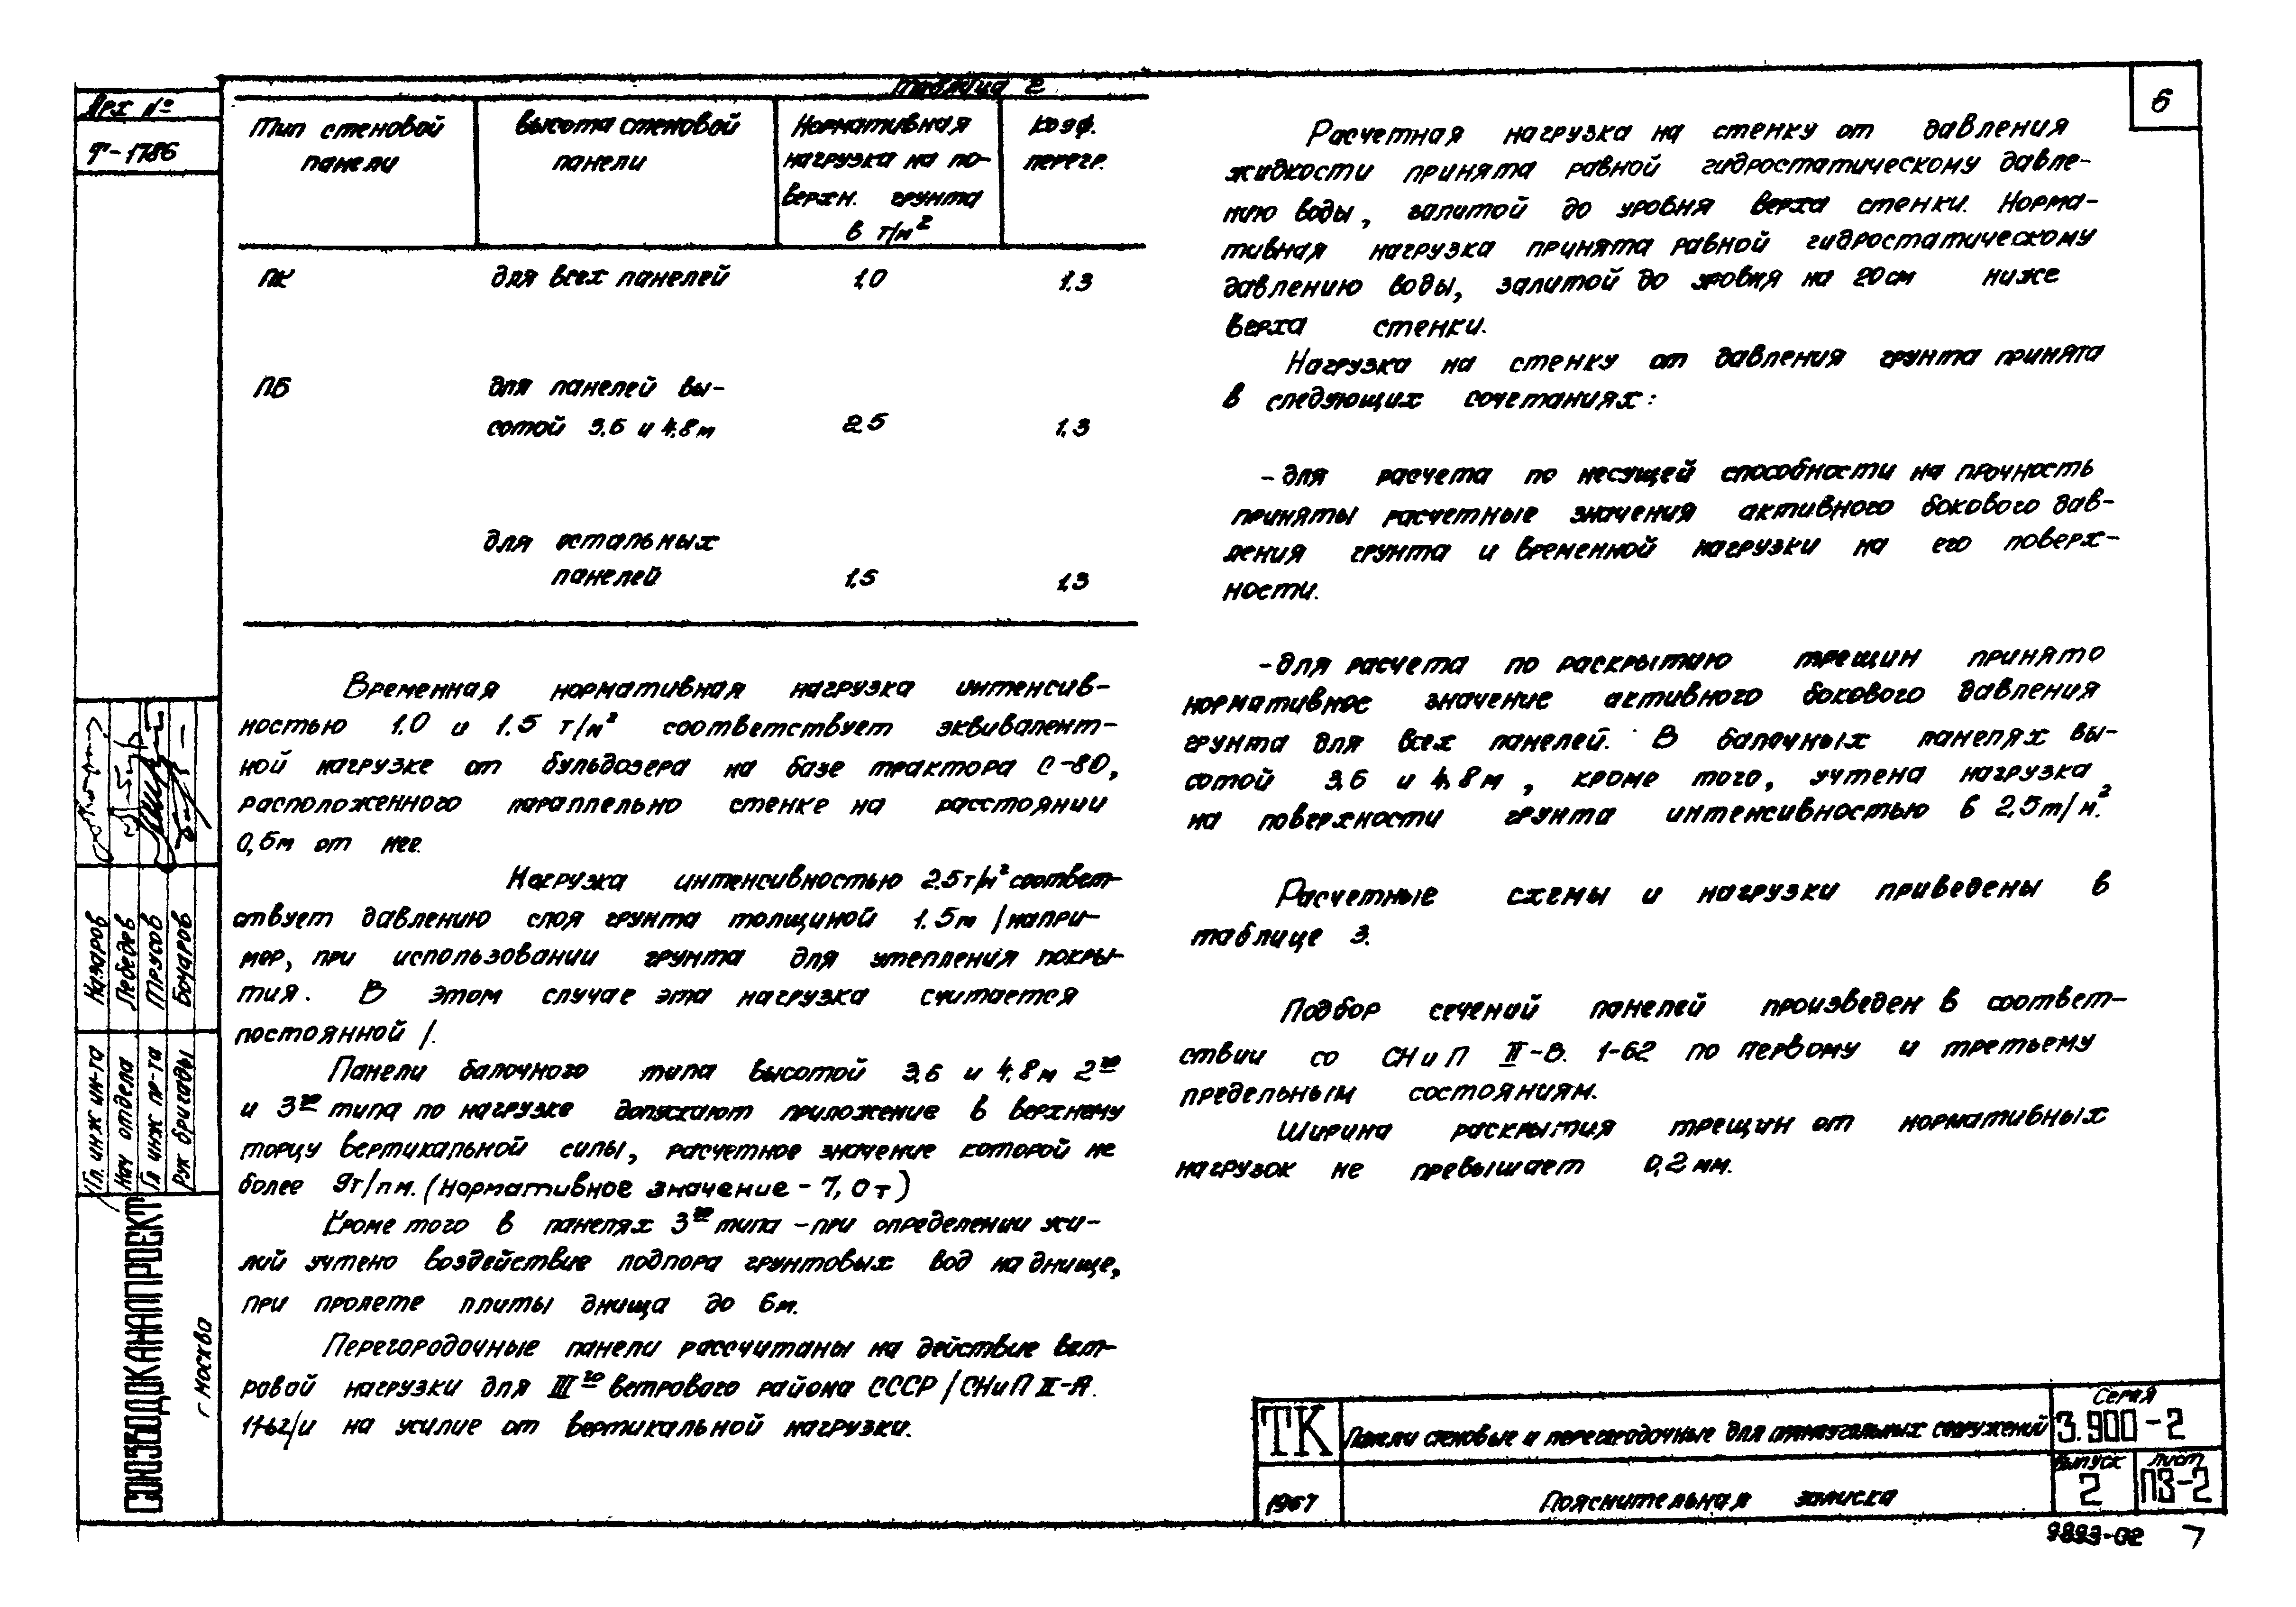 Арх №
Т-1786
Таблица 2
Тип стеновой панели
высота стеновой панели
Нормативная нагрузка на поверхн. грунта в т/м²
Коэф. перегр.
ПК для всех панелей 1.0 1.3
ПБ для панелей вы-
сотой 3.6 и 4.8м 2.5 1.3
для остальных
панелей 1.5 1.3
Временная нормативная нагрузка интенсив-
ностью 1.0 и 1.5 т/м² соответствует эквивалент-
ной нагрузке от бульдозера на базе трактора С-80,
расположенного параллельно стенке на расстоянии
0,5м от нее.
Нагрузка интенсивностью 2.5т/м² соответ-
ствует давлению слоя грунта толщиной 1.5м /напри-
мер, при использовании грунта для утепления покры-
тия. В этом случае эта нагрузка считается
постоянной /.
Панели балочного типа высотой 3,6 и 4,8м 2го
и 3го типа по нагрузке допускают приложение в верхнему
торцу вертикальной силы, расчетное значение которой не
более 9т/пм. (нормативное значение - 7,0т)
Кроме того в панелях 3го типа - при определении уси-
лий учтено воздействие подпора грунтовых вод на днище,
при пролете плиты днища до 6м.
Перегородочные панели рассчитаны на действие вет-
ровой нагрузки для III го ветрового района СССР /СНиП II-А.
11-62/и на усилие от вертикальной нагрузки.
6
Расчетная нагрузка на стенку от давления
жидкости принята равной гидростатическому давле-
нию воды, залитой до уровня верха стенки. Норма-
тивная нагрузка принята равной гидростатическому
давлению воды, залитой до уровня на 20 см ниже
верха стенки.
Нагрузка на стенку от давления грунта принята
в следующих сочетаниях:
- для расчета по несущей способности на прочность
приняты расчетные значения активного бокового дав-
ления грунта и временной нагрузки на его поверх-
ности.
- для расчета по раскрытию трещин принято
нормативное значение активного бокового давления
грунта для всех панелей. В балочных панелях вы-
сотой 3.6 и 4.8м, кроме того, учтена нагрузка
на поверхности грунта интенсивностью в 2,5т/м².
Расчетные схемы и нагрузки приведены в
таблице 3.
Подбор сечений панелей произведен в соответ-
ствии со СНиП II-В. 1-62 по первому и третьему
предельным состояниям.
Ширина раскрытия трещин от нормативных
нагрузок не превышает 0,2мм.
Гл. инж ин-та Назаров
Нач отдела Лебедев
Гл инж пр-та Трусов
Рук бригады Бонаров
СОЮЗВОДОКАНАЛПРОЕКТ
г Москва
ТК
1967
Панели стеновые и перегородочные для прямоугольных сооружений
Пояснительная записка
Серия
3.900-2
Выпуск
2
лист
ПЗ-2
9893-02 7